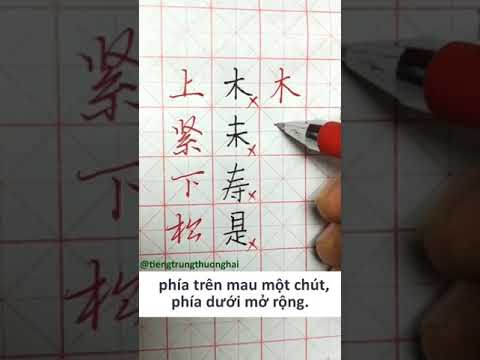 上 木 × 木
紧 未 ×
下 寿 ×
松 是 ×
@tiengtrungthuonghai
phía trên mau một chút,
phía dưới mở rộng.